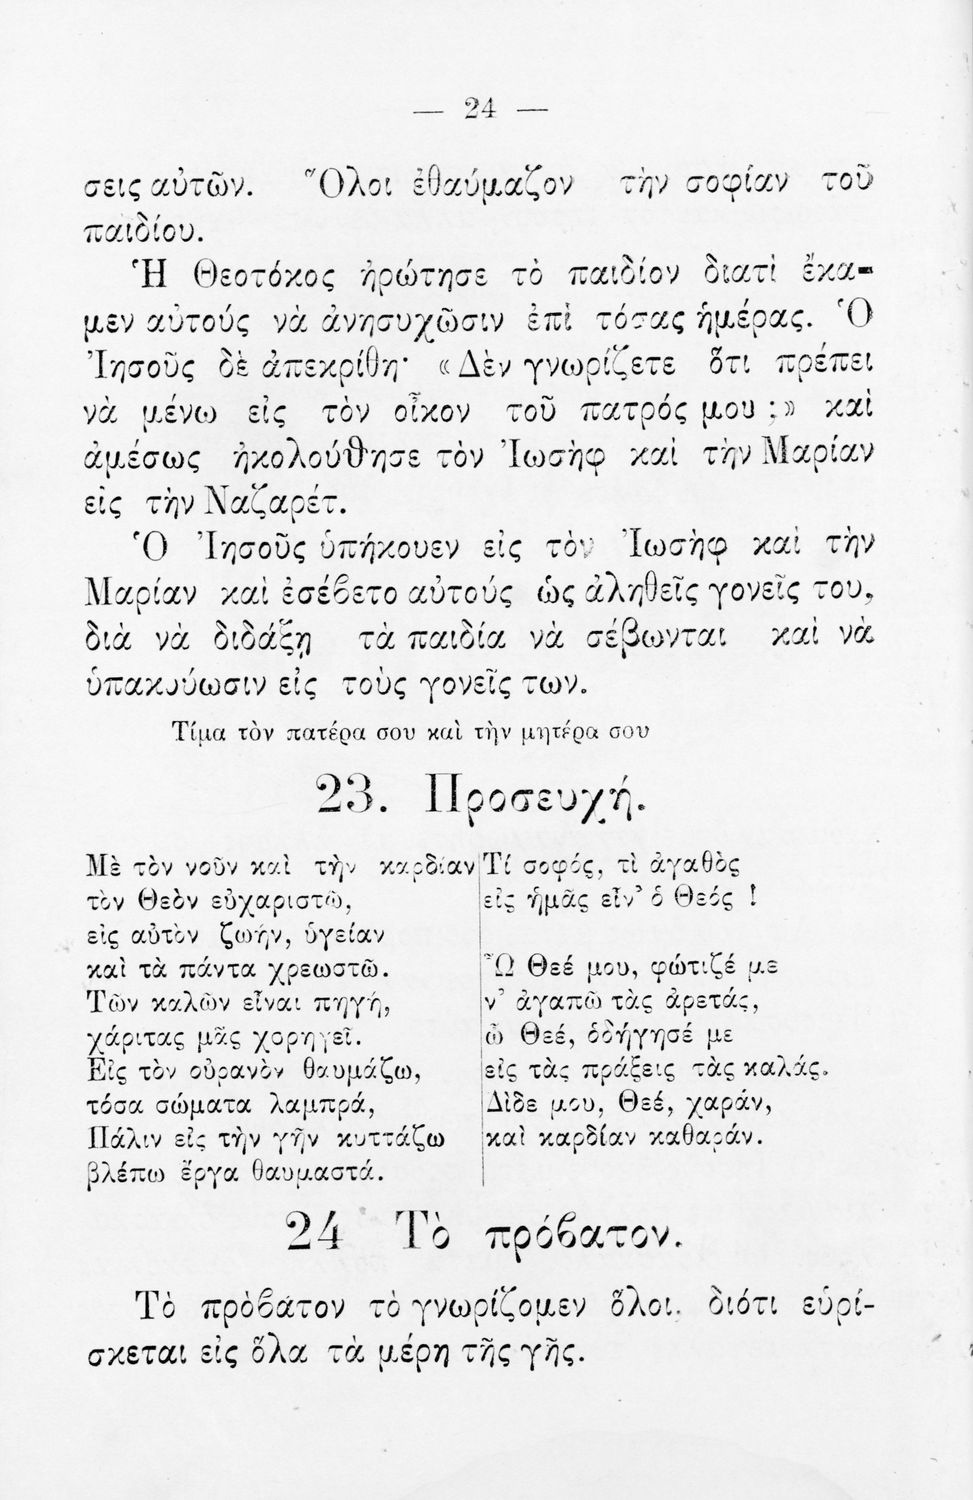 — 24 —
σεις αὐτῶν. Ὅλοι ἐθαύμαζον τὴν σοφίαν τοῦ
παιδίου.
Ἡ Θεοτόκος ἠρώτησε τὸ παιδίον διατὶ ἔκα-
μεν αὐτοὺς νὰ ἀνησυχῶσιν ἐπὶ τόσας ἡμέρας. Ὁ
Ἰησοῦς δὲ ἀπεκρίθη· «Δὲν γνωρίζετε ὅτι πρέπει
νὰ μένω εἰς τὸν οἶκον τοῦ πατρός μου ;» καὶ
ἀμέσως ἠκολούθησε τὸν Ἰωσὴφ καὶ τὴν Μαρίαν
εἰς τὴν Ναζαρέτ.
Ὁ Ἰησοῦς ὑπήκουεν εἰς τὸν Ἰωσὴφ καὶ τὴν
Μαρίαν καὶ ἐσέβετο αὐτούς ὡς ἀληθεῖς γονεῖς του,
διὰ νὰ διδάξῃ τὰ παιδία νὰ σέβωνται καὶ νὰ
ὑπακούωσιν εἰς τοὺς γονεῖς των.
Τίμα τὸν πατέρα σου καὶ τὴν μητέρα σου
23. Προσευχή.
Μὲ τὸν νοῦν καὶ τὴν καρδίαν
τὸν Θεὸν εὐχαριστῶ,
εἰς αὐτὸν ζωήν, ὑγείαν
καὶ τὰ πάντα χρεωστῶ.
Τῶν καλῶν εἶναι πηγή,
χάριτας μᾶς χορηγεῖ.
Εἰς τὸν οὐρανὸν θαυμάζω,
τόσα σώματα λαμπρά,
Πάλιν εἰς τὴν γῆν κυττάζω
βλέπω ἔργα θαυμαστά.
Τί σοφός, τὶ ἀγαθὸς
εἰς ἡμᾶς εἶν' ὁ Θεός !
Ὦ Θεέ μου, φώτιζέ με
ν' ἀγαπῶ τὰς ἀρετάς,
ὦ Θεέ, ὁδήγησέ με
εἰς τὰς πράξεις τὰς καλάς.
Δίδε μου, Θεέ, χαράν,
καὶ καρδίαν καθαράν.
24 Τὸ πρόβατον.
Τὸ πρόβατον τὸ γνωρίζομεν ὅλοι, διότι εὑρί-
σκεται εἰς ὅλα τὰ μέρη τῆς γῆς.